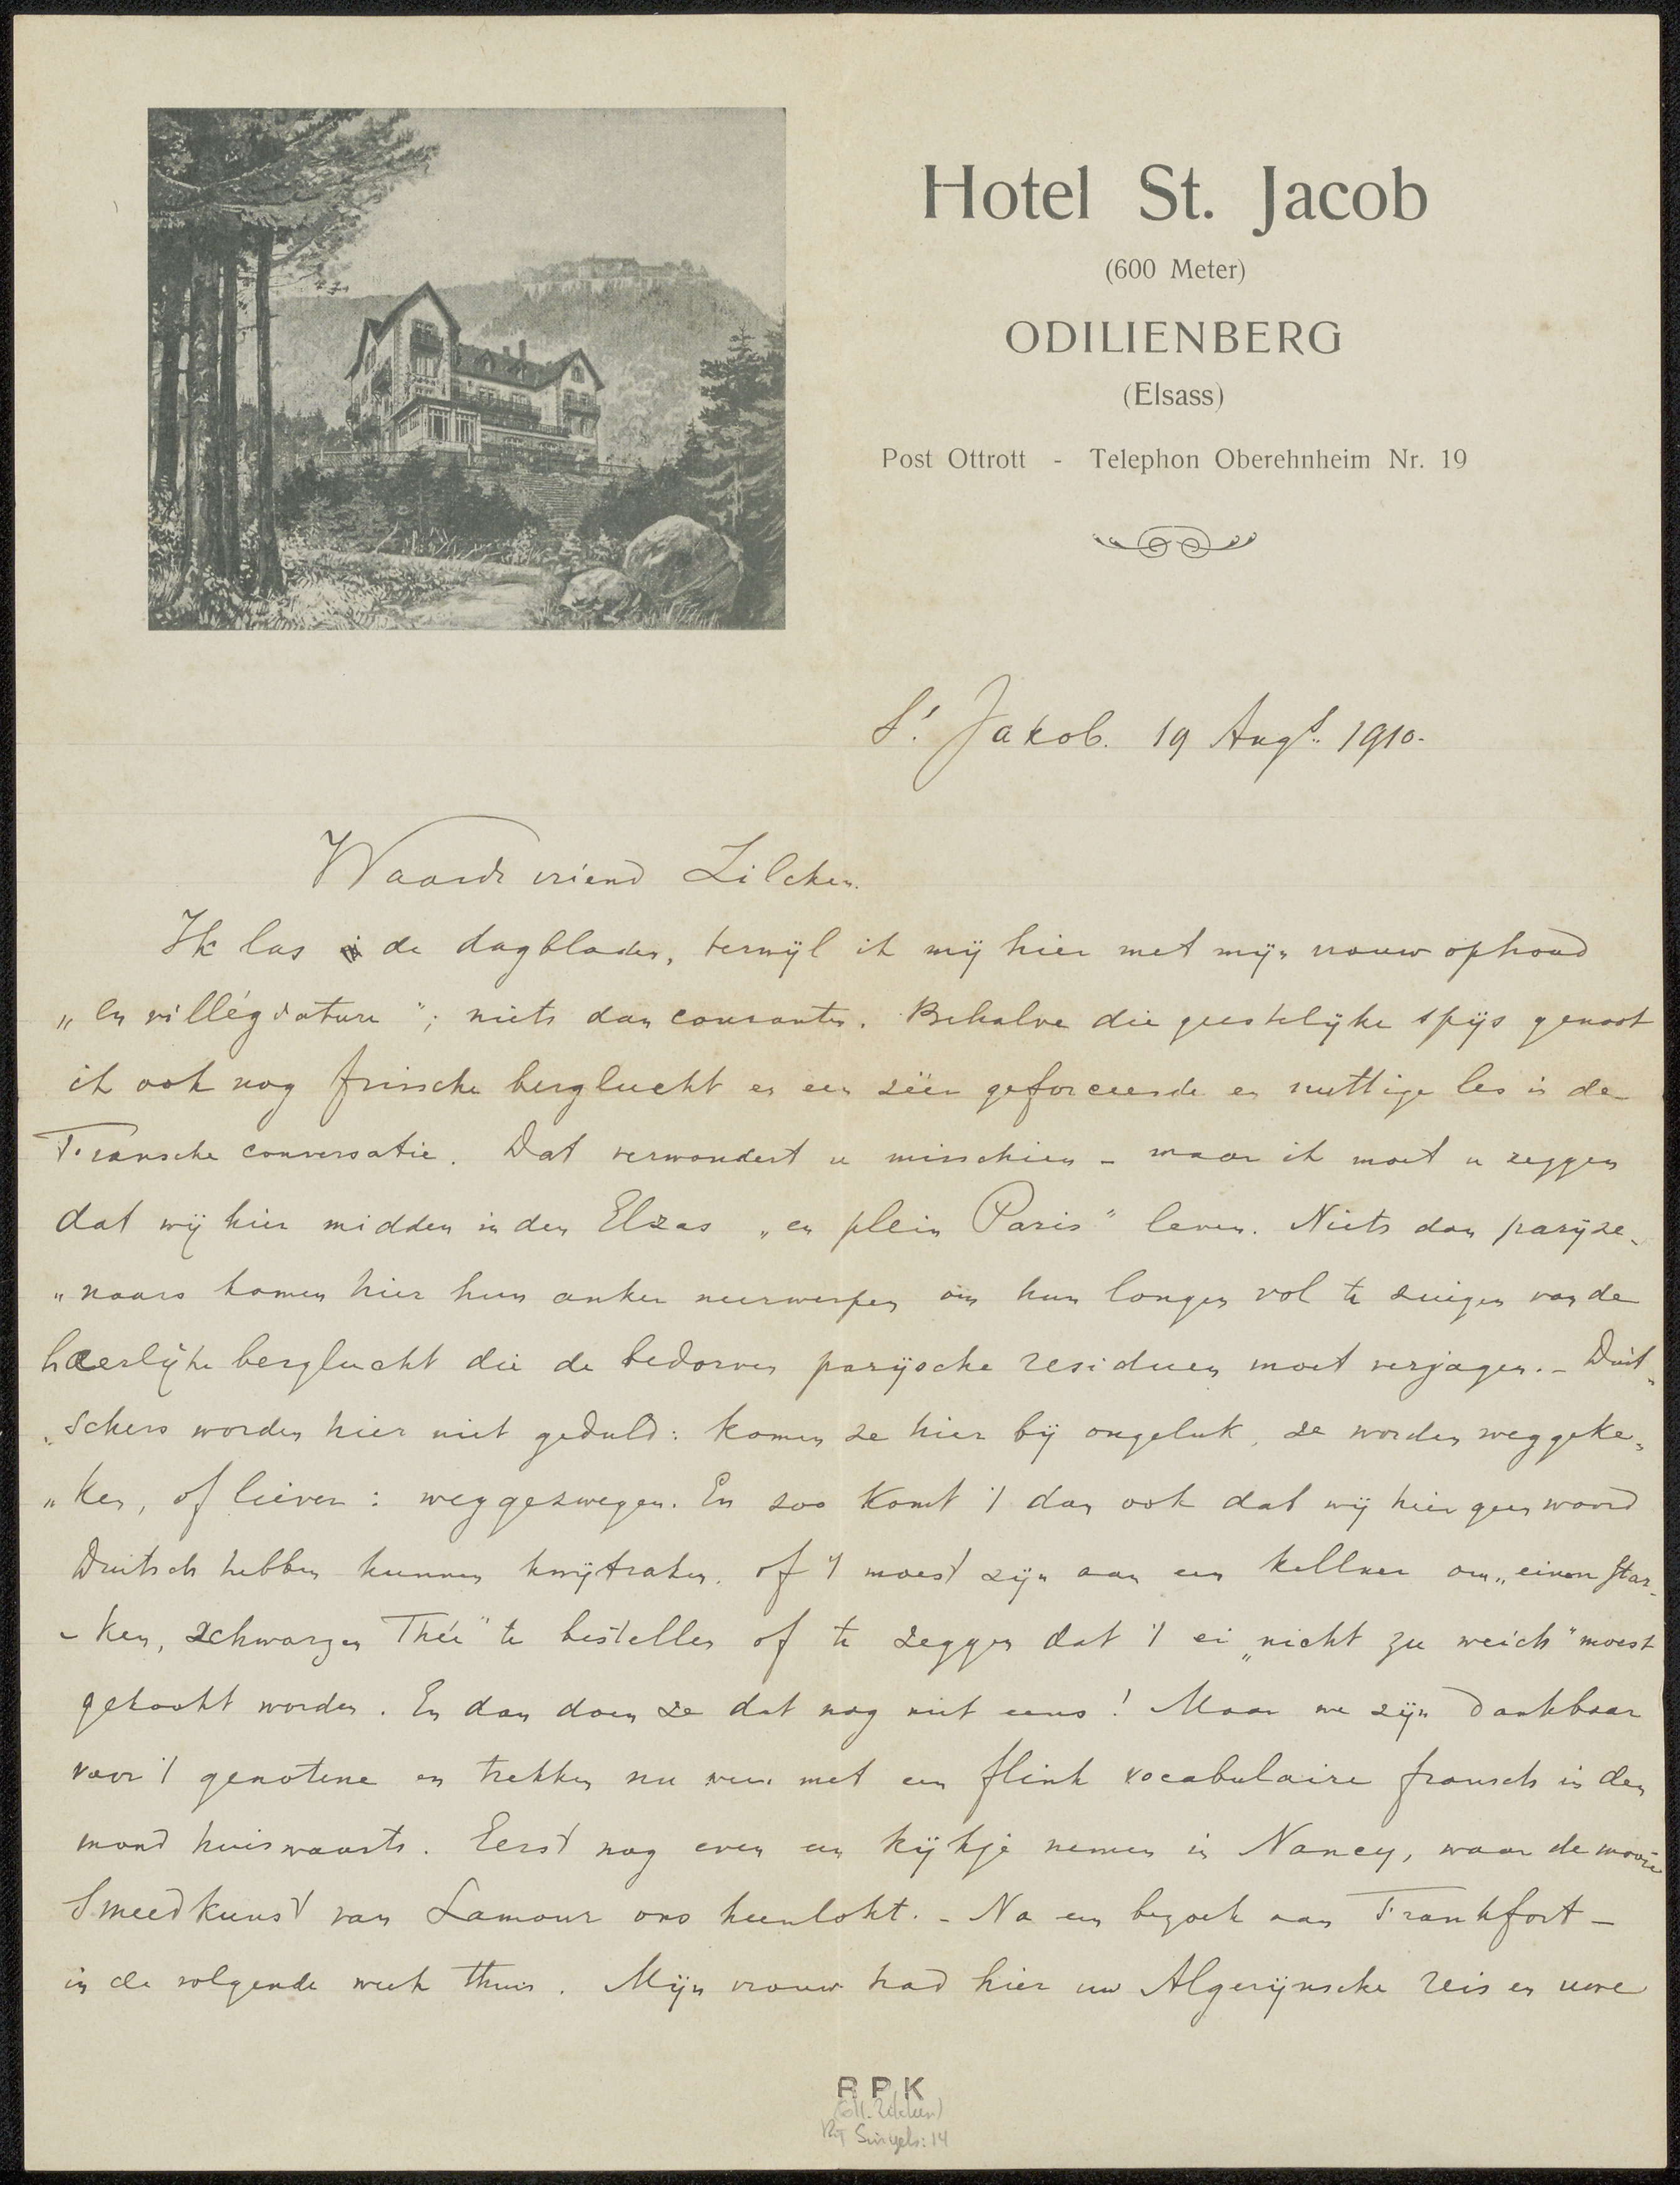 Hotel St. Jacob
(600 Meter)
ODILIENBERG
(Elsass)
Post Ottrott - Telephon Oberehnheim Nr. 19
St Jakob. 19 Augt. 1910.
Waarde vriend Zilcken.
Ik las de dagbladen, terwijl ik mij hier met mijn vrouw ophoud
„en villégiature"; niets dan couranten. Behalve die geestelijke spijs genoot
ik ook nog frissche berglucht en een zéér geforceerde en nuttige les in de
Fransche conversatie. Dat verwondert u misschien - maar ik moet u zeggen
dat wij hier midden in den Elzas „en plein Paris" leven. Niets dan parijze„
„naars komen hier hun anker neerwerpen om hun longen vol te zuigen van de
heerlijke berglucht die de bedorven parijsche residuen moet verjagen. - Duit„
„schers worden hier niet geduld: komen ze hier bij ongeluk, ze worden weggeke„
„ken, of liever: weggezwegen. En zoo komt 't dan ook dat wij hier geen woord
Duitsch hebben kunnen kwijtraken, of 't moest zijn aan een kellner om „einen star-
- ken, schwarzen Thée" te bestellen of te zeggen dat 't ei „nicht zu weich" moest
gekookt worden. En dan doen ze dat nog niet eens! Maar we zijn dankbaar
voor 't genotene en trekken nu weer met een flink vocabulaire fransch in den
mond huiswaarts. Eerst nog even een kijkje nemen in Nancy, waar de mooie
Smeedkunst van Lamour ons heenlokt. - Na een bezoek aan Frankfort -
in de volgende week thuis. Mijn vrouw had hier uw Algerijnsche reis en uwe
R P K
(Coll. Zilcken)
Singels: 14